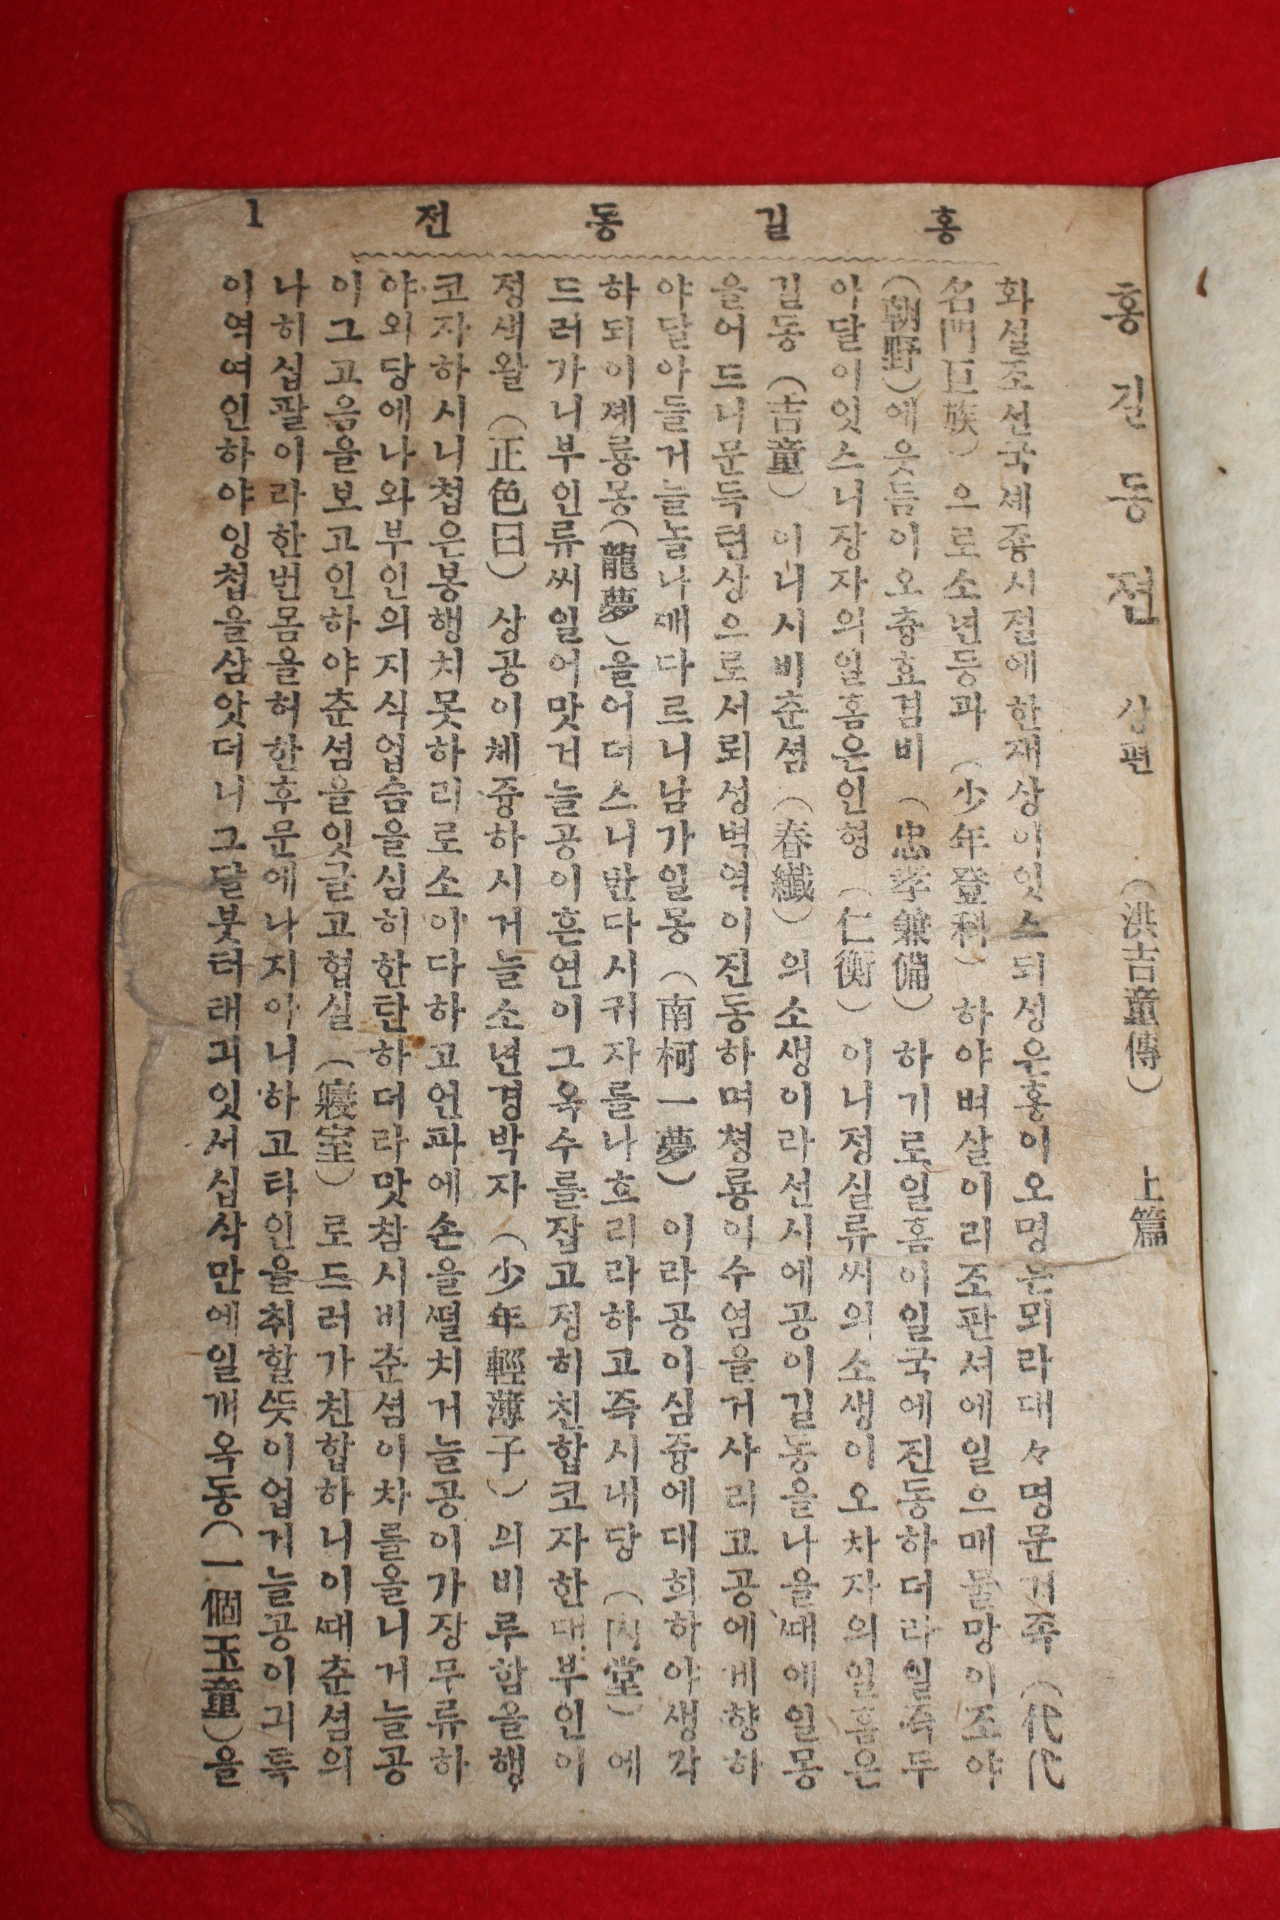 홍길동전 1
홍길동젼 상편 (洪吉童傳) 上篇
화설조선국세죵시절에한재상이잇스되성은홍이오명은뫼라대々명문거족 (代代
名門巨族) 으로소년등과 (少年登科) 하야벼살이리조판셔에일으매물망이조야
(朝野)에읏듬이오츙효겸비 (忠孝兼備) 하기로일홈이일국에진동하더라일즉두
아달이잇스니장자의일홈은인형 (仁衡) 이니졍실류씨의소생이오차자의일홈은
길동 (吉童) 이니시비춘셤 (春纖) 의소생이라선시에공이길동을나을때에일몽
을어드니문득텬상으로서뢰성벽역이진동하며쳥룡이수염을거사리고공에게향하
야달아들거늘놀나깨다르니남가일몽 (南柯一夢) 이라공이심즁에대희하야생각
하되이졔룡몽(龍夢)을어더스니반다시귀자를나흐리라하고즉시내당 (內堂) 에
드러가니부인류씨일어맛거늘공이흔연이그옥수를잡고정히친합코자한대부인이
정색왈 (正色曰) 상공이체즁하시거늘소년경박자 (少年輕薄子) 의비루함을행
코자하시니첩은봉행치못하리로소이다하고언파에손을떨치거늘공이가장무류하
야외당에나와부인의지식업슴을심히한탄하더라맛참시비춘셤이차를올니거늘공
이그고음을보고인하야춘셤을잇글고협실 (寢室) 로드러가친합하니이때춘셤의
나히십팔이라한번몸을허한후문에나지아니하고타인을취할뜻이업거늘공이긔특
이역여인하야잉첩을삼앗더니그달붓터태긔잇서십삭만에일개옥동(一個玉童)을